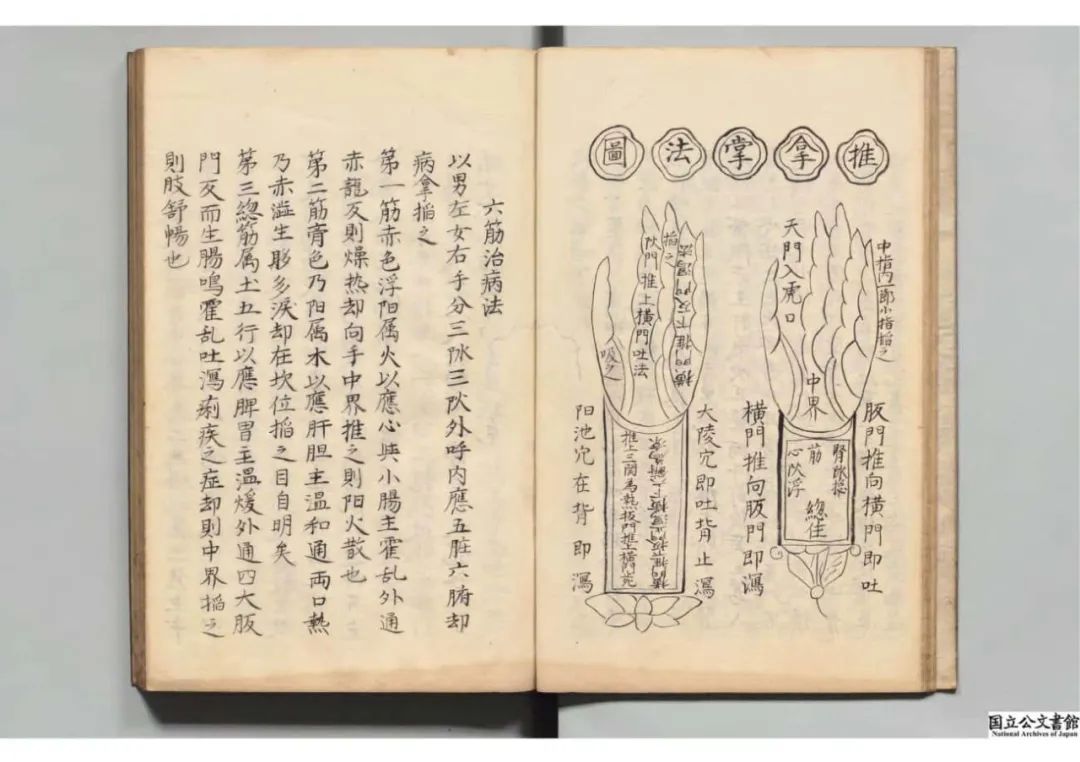 推拿掌法圖
中指內一節小指掐之
天門入虎口
中界
板門推向橫門即吐
筋
心
浮
總住
橫門推向板門即瀉
大陵穴即吐背止瀉
掐之
門推上橫門吐法
橫門推下反門瀉法
吸之
推上三関為熱板門推上橫門
阳池穴在背即瀉
六筋治病法
以男左女右手分三㳀三㳀外呼内應五脏六腑却
病拿掐之
第一筋赤色浮阳属火以應心與小腸主霍乱外通
赤龍反則燥热却向手中界推之則阳火散也
第二筋青色乃阳属木以應肝胆主温和通両口熱
乃赤澁生眵多淚却在坎位掐之目自明矣
第三緫筋属土五行以應脾胃主温煖外通四大板
門反而生腸鳴霍乱吐瀉痢疾之症却則中界掐之
則肢舒暢也
国立公文書館
National Archives of Japan